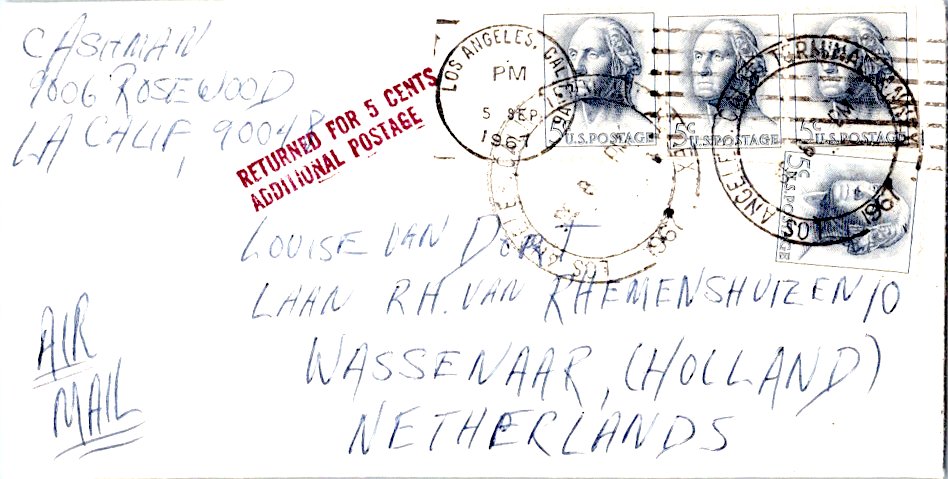 CASHMAN
9006 ROSEWOOD
LA CALIF, 90048
RETURNED FOR 5 CENTS
ADDITIONAL POSTAGE
LOS ANGELES, CALIF
PM
5 SEP
1967
U.S. POSTAGE
5c U.S. POSTAGE
5c U.S. POSTAGE
5c U.S. POSTAGE
LOS ANGELES
1967
TERMINAL ANNEX
LOS ANGELES
1967
LOUISE VAN DORT
LAAN RH. VAN RHEMENSHUIZEN 10
WASSENAAR, (HOLLAND)
NETHERLANDS
AIR
MAIL